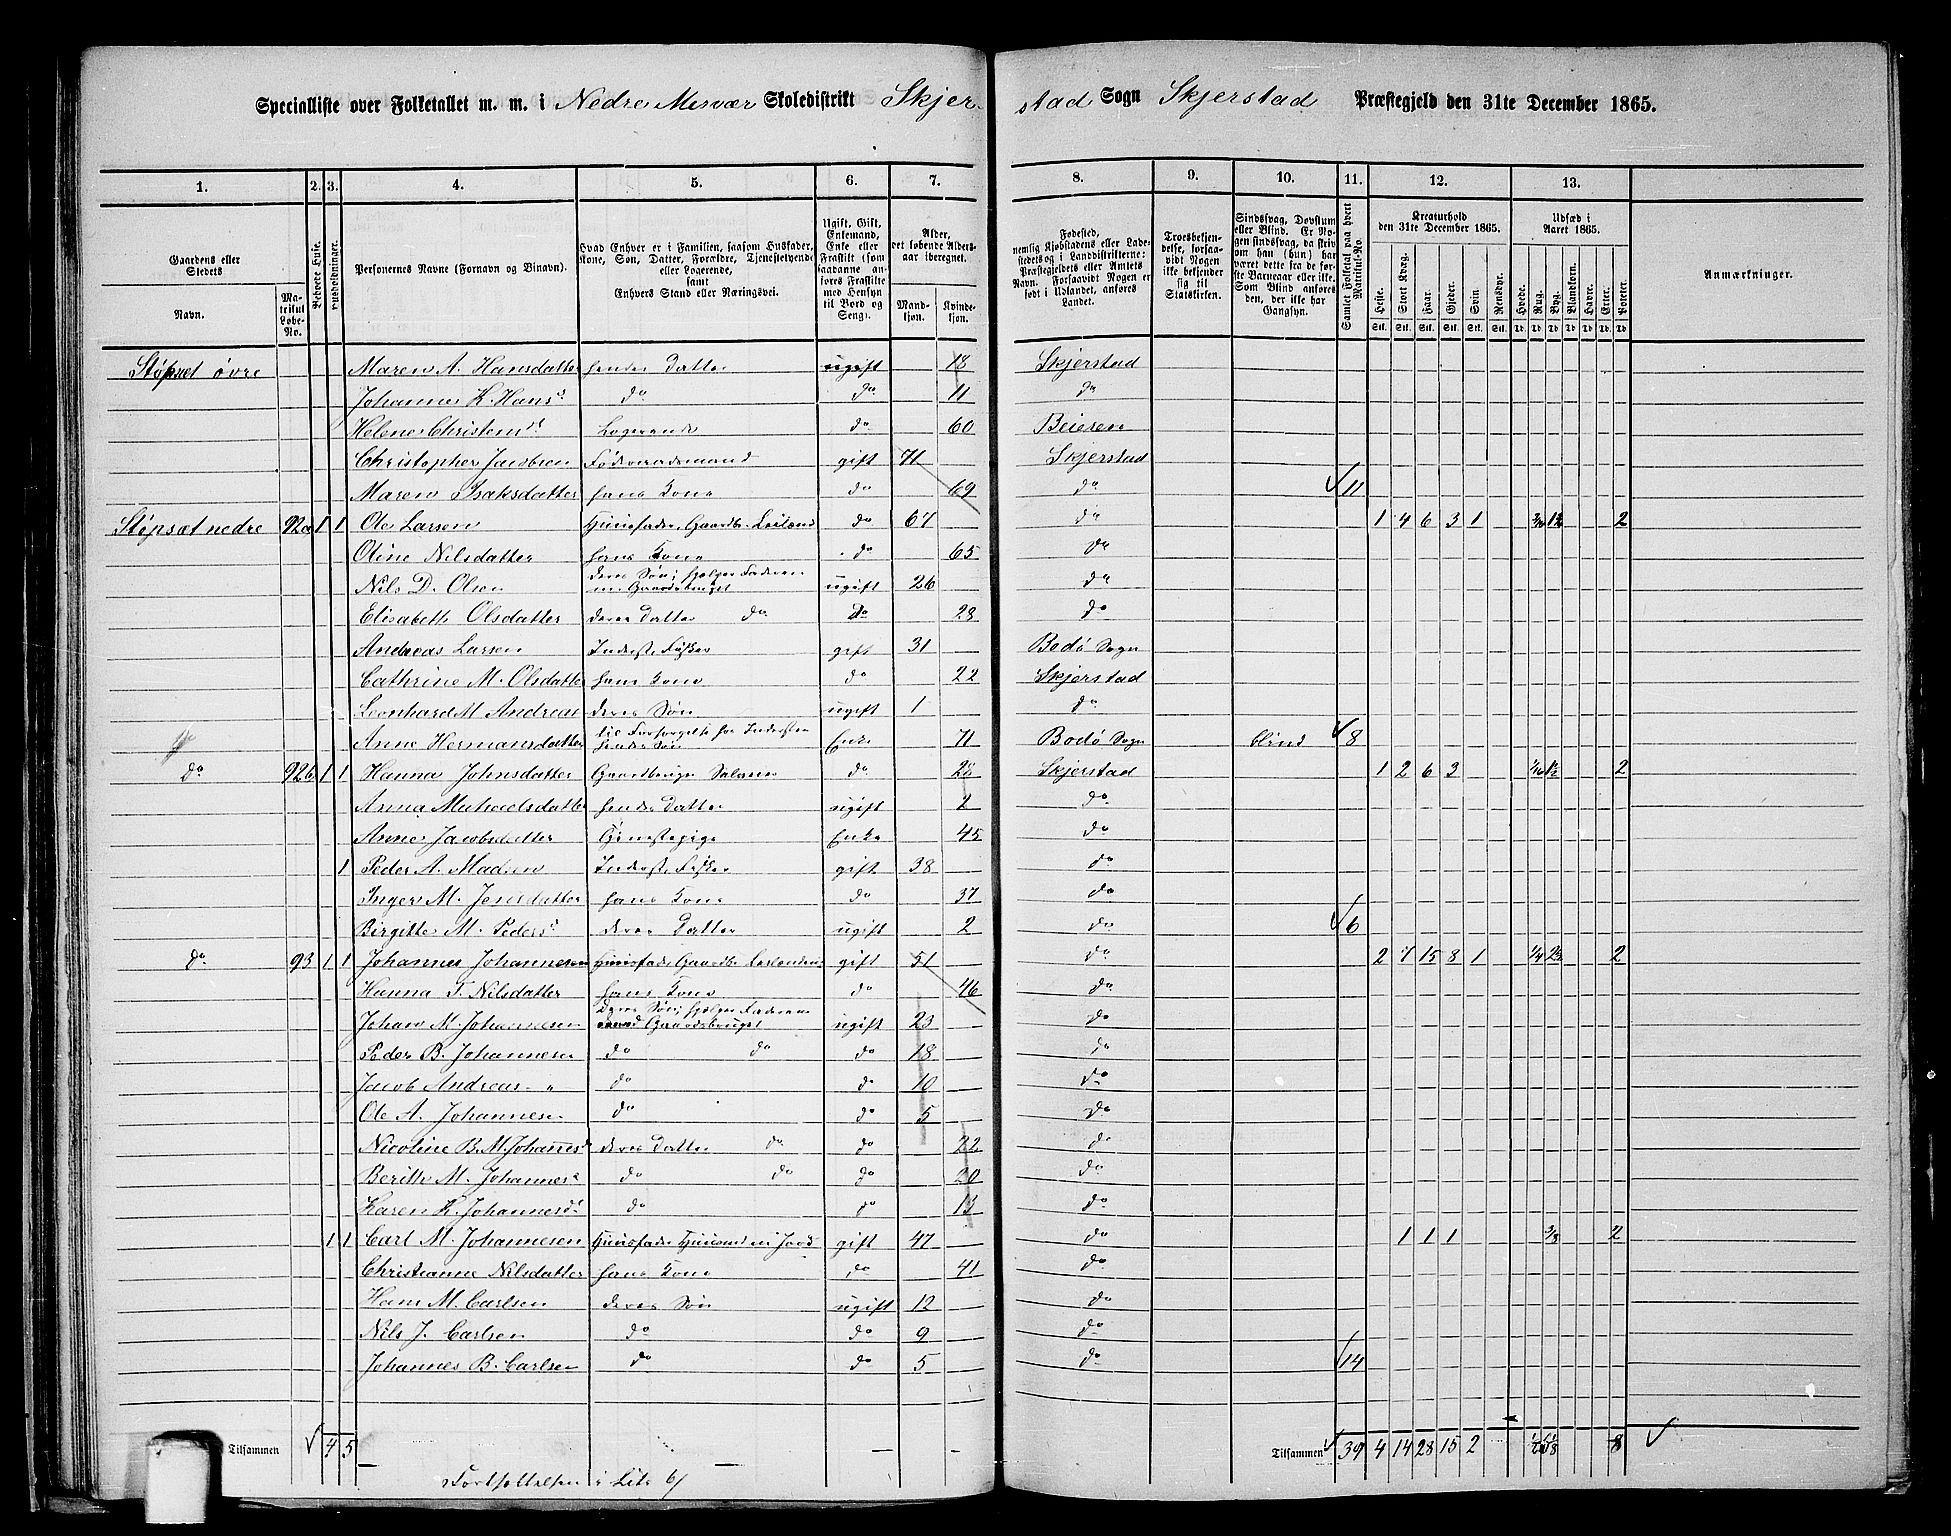 Specialliste over Folketallet m. m. i Nedre Misvær Skoledistrikt Skjerstad Sogn Skjerstad Præstegjeld den 31te December 1865.
1. 2. 3. 4. 5. 6. 7. 8. 9. 10. 11. 12. 13.
Gaardens eller Stedets
Navn.
Matrikul Løbe-No.
Beboede Huse.
Husholdninger.
Personernes Navne (Fornavn og Binavn).
Hvad Enhver er i Familien, saasom Husfader, Kone, Søn, Datter, Forældre, Tjenestetyende eller Logerende, samt Enhvers Stand eller Næringsvei.
Ugift, Gift, Enkemand, Enke eller Fraskilt (som saadanne anføres Fraskilte med Hensyn til Bord og Seng).
Alder, det løbende Alders-aar iberegnet.
Mandkjøn. Kvindekjøn.
Fødested, nemlig Kjøbstadens eller Ladestedets og i Landdistrikterne: Præstegjeldets eller Amtets Navn. Forsaavidt Nogen er født i Udlandet, anføres Landet.
Troesbekjendelse, forsaavidt Nogen ikke bekjender sig til Statskirken.
Sindssvag, Døvstum eller Blind. Er Nogen sindssvag, da skriv om han (hun) har været dette fra de første Barneaar eller ikke. Som Blind anføres den, der ikke har Gangsyn.
Samlet Folketal paa hvert Matrikul-No.
Kreaturhold den 31te December 1865.
Heste. Stort Kvæg. Faar. Gjeder. Svin. Rensdyr.
Udsæd i Aaret 1865.
Hvede. Rug. Byg. Blandkorn. Havre. Erter. Poteter.
Anmærkninger.
Støpset øvre Maren A. Hansdatter hendes Datter ugift 18 Skjerstad
Johanne K. Hansd. do do 11 do
Helene Christensd. Logerende do 60 Beieren
Christopher Jacobsen Føderaadsmand gift 71 Skjerstad
Maren Isaksdatter hans Kone do 69 do 11
Støpsæt nedre 92a 1 1 Ole Larsen Huusfader, Gaardbr. Leilænd do 67 do 1 4 6 3 1 2
Oline Nilsdatter hans Kone do 65 do
Nils D. Olsen deres Søn, hjelper Faderen m. Gaardsbruget ugift 26 do
Elisabeth Olsdatter deres Datter do do 28 do
Andreas Larsen Inderst, Fisker gift 31 Bodø Sogn
Cathrine M. Olsdatter hans Kone do 22 Skjerstad
Leonhard M Andreas deres Søn ugift 1 do
Anne Hermansdatter til Forsørgelse hos Indersten hendes Søn Enke 71 Bodø Sogn blind 8
do 92b 1 1 Hanna Johnsdatter Gaardbruger Selveier do 28 Skjerstad 1 2 6 3 2
Anna Michaelsdatter hendes Datter ugift 2 do
Anne Jacobsdatter Tjenestepige Enke 45 do
1 Peder A. Madsen Inderst, Fisker gift 38 do
Inger M. Jensdatter hans Kone do 37 do
Birgitte M. Pedersd deres Datter ugift 2 do 6
do 93 1 1 Johannes Johannesen Huusfader Gaardbr. Leilænding gift 51 do 2 7 15 8 1 1/4 2
Hanna T. Nilsdatter hans Kone do 46 do
Johan M. Johannesen Deres Søn, hjelper Faderen med Gaardsbruget ugift 23 do
Peder B. Johannesen do do do 18 do
Jacob Andreas " do do 10 do
Ole A. Johannesen do do 5 do
Nicoline B. M. Johannesd deres Datter do do 22 do
Berith M. Johannesd do do do 20 do
Karen K. Johannesd. do do 13 do
1 1 Carl M. Johannesen Huusfader Huusmd m/ Jord gift 47 do 1 1 1 2
Christianne Nilsdatter hans Kone do 41 do
Hans M. Carlsen deres Søn ugift 12 do
Nils J. Carlsen do do 9 do
Johannes B. Carlsen do do 5 do 14
Tilsammen 4 5 Tilsammen 39 4 14 28 15 2 8
Fortsættelsen i Lit. b/